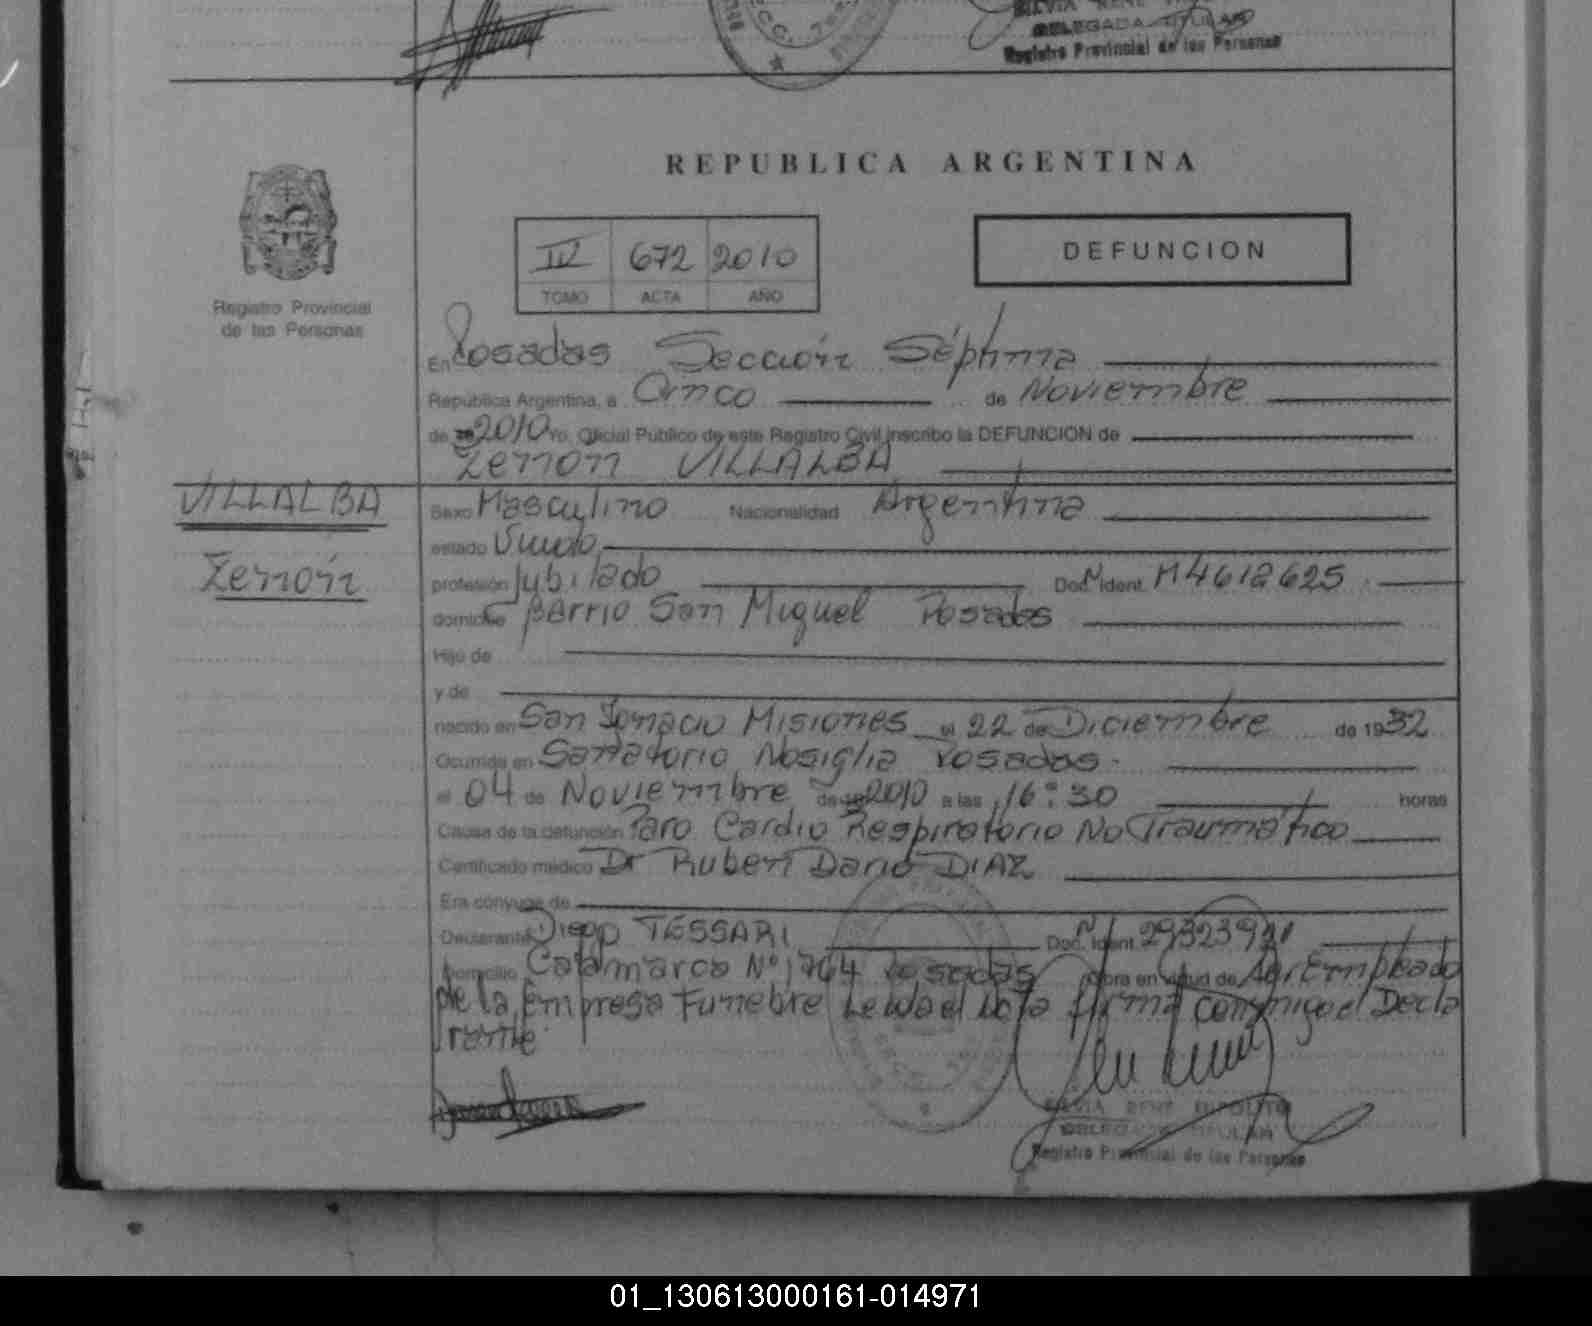 DELEGADA TITULAR
Registro Provincial de las Personas
REPUBLICA ARGENTINA
IV 672 2010
TOMO ACTA AÑO
DEFUNCION
Registro Provincial
de las Personas
En Posadas Sección Séptima
República Argentina, a Cinco de Noviembre
de 2010 Yo, Oficial Público de este Registro Civil inscribo la DEFUNCION de
Zenon VILLALBA
VILLALBA
Zenón
Sexo Masculino Nacionalidad Argentina
estado Viudo
profesión Jubilado Doc. N Ident. M4612625
domicilio Barrio San Miguel Posadas
Hijo de
y de
nacido en San Ignacio Misiones el 22 de Diciembre de 1932
Ocurrida en Sanatorio Nosiglia Posadas
el 04 de Noviembre de 2010 a las 16:30 horas
Causa de la defunción Paro Cardio Respiratorio No Traumático
Certificado médico Dr Ruben Dario DIAZ
Era cónyuge de
Declarante Diego TESSARI Doc. N Ident.
Domicilio Catamarca Nº 1764 Posadas Obra en virtud de Ser Empleado
de la Empresa Funebre Leida el Acta firma conmigo el Decla
rante
SILVIA RENE HIPOLITO
DELEGADA TITULAR
Registro Provincial de las Personas
01_130613000161-014971